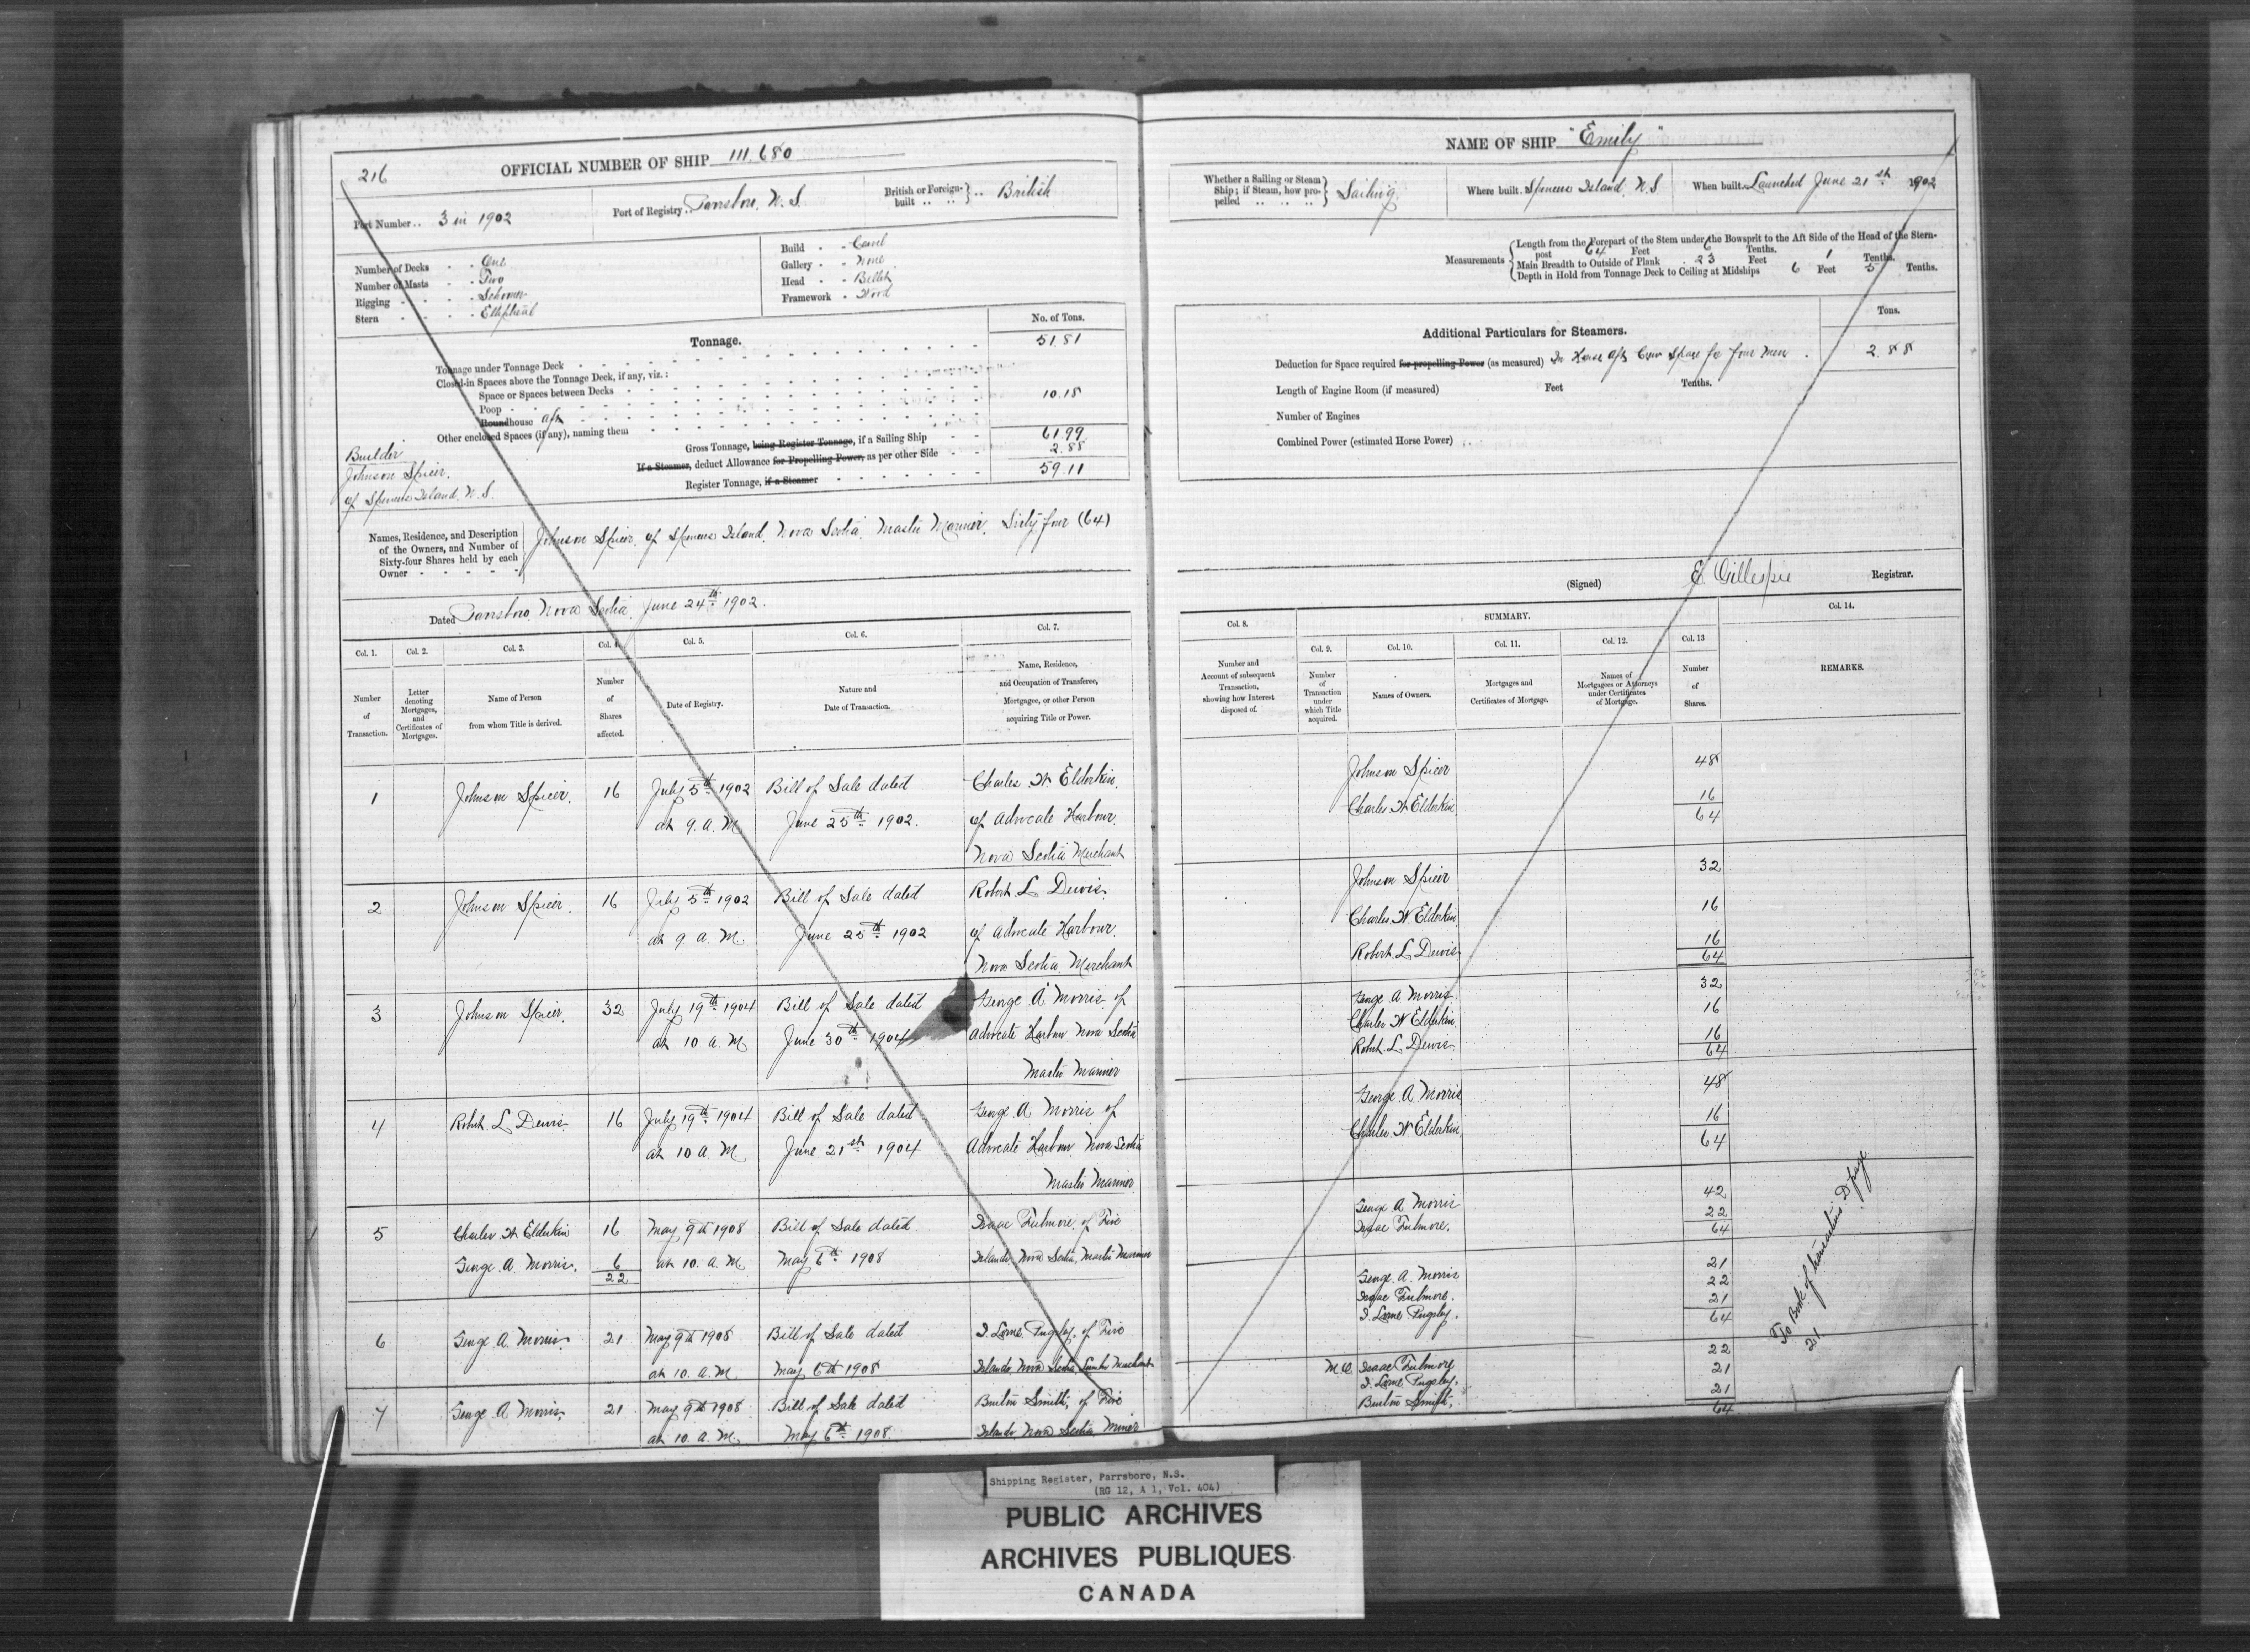 216
OFFICIAL NUMBER OF SHIP 111.680
Port Number .. 3 in 1902
Port of Registry .. Parrsboro, N. S.
British or Foreign-built .. .. } .. British
Number of Decks - - One
Number of Masts - - Two
Rigging - - - - Schooner
Stern - - - - Elliptical
Build - - Carvel
Gallery - - None
Head - - Billet
Framework - Wood
Tonnage.
No. of Tons.
Tonnage under Tonnage Deck 51.81
Closed-in Spaces above the Tonnage Deck, if any, viz.:
Space or Spaces between Decks
Poop
Roundhouse aft 10.18
Other enclosed Spaces (if any), naming them
Gross Tonnage, being Register Tonnage, if a Sailing Ship 61.99
If a Steamer, deduct Allowance for Propelling Power, as per other Side 2.88
Register Tonnage, if a Steamer 59.11
Builder
Johnson Spicer.
of Spencers Island. N. S.
Names, Residence, and Description of the Owners, and Number of Sixty-four Shares held by each Owner
Johnson Spicer, of Spencers Island, Nova Scotia, Master Mariner, Sixty four (64)
Dated Parrsboro, Nova Scotia, June 24th 1902.
Col. 1. Col. 2. Col. 3. Col. 4. Col. 5. Col. 6. Col. 7.
Number of Transaction.
Letter denoting Mortgages, and Certificates of Mortgages.
Name of Person from whom Title is derived.
Number of Shares affected.
Date of Registry.
Nature and Date of Transaction.
Name, Residence, and Occupation of Transferee, Mortgagee, or other Person acquiring Title or Power.
1 Johnson Spicer. 16 July 5th 1902 Bill of Sale dated Charles W Elderkin,
at 9. A. M. June 25th 1902. of Advocate Harbour.
Nova Scotia Merchant
2 Johnson Spicer. 16 July 5th 1902 Bill of Sale dated Robert L Dewis.
at 9 A. M. June 25th 1902 of Advocate Harbour.
Nova Scotia. Merchant
3 Johnson Spicer. 32 July 19th 1904 Bill of Sale dated George A Morris, of
at 10 A. M June 30th 1904 Advocate Harbour Nova Scotia
Master Mariner
4 Robert. L Dewis. 16 July 19th 1904 Bill of Sale dated George A Morris of
at 10 A. M. June 21st 1904 Advocate Harbour, Nova Scotia
Master Mariner
5 Charles W Elderkin 16 May 9th 1908 Bill of Sale dated Isaac Fulmore, of Five
George A Morris. 6 at 10. A. M. May 6th 1908 Islands, Nova Scotia, Master Mariner
22
6 George A. Morris. 21 May 9th 1908 Bill of Sale dated I. Lorne Pugsley, of Five
at 10. A. M. May 6th 1908 Islands, Nova Scotia, Lumber Merchant
7 George A Morris. 21 May 9th 1908 Bill of Sale dated Burton Smith, of Five
at 10. A. M. May 6th 1908. Islands, Nova Scotia, Miner
NAME OF SHIP "Emily"
Whether a Sailing or Steam Ship; if Steam, how propelled .. .. .. } Sailing
Where built. Spencers Island, N. S
When built. Launched June 21st 1902
Measurements
Length from the Forepart of the Stem under the Bowsprit to the Aft Side of the Head of the Stern-
post 64 Feet 6 Tenths.
Main Breadth to Outside of Plank - 23 Feet 1 Tenths.
Depth in Hold from Tonnage Deck to Ceiling at Midships 6 Feet 5 Tenths.
Additional Particulars for Steamers.
Tons.
Deduction for Space required for propelling Power (as measured) In House aft Crew Space for four Men. 2.88
Length of Engine Room (if measured) Feet Tenths.
Number of Engines
Combined Power (estimated Horse Power) ..
(Signed) E Gillespie Registrar.
Col. 8.
SUMMARY.
Col. 14.
Col. 9. Col. 10. Col. 11. Col. 12. Col. 13
Number and Account of subsequent Transaction, showing how Interest disposed of.
Number of Transaction under which Title acquired.
Names of Owners.
Mortgages and Certificates of Mortgage.
Names of Mortgagees or Attorneys under Certificates of Mortgage.
Number of Shares.
REMARKS.
Johnson Spicer 48
Charles W Elderkin 16
64
Johnson Spicer 32
Charles W. Elderkin 16
Robert L Dewis 16
64
George A Morris 32
Charles W Elderkin 16
Robert. L Dewis 16
64
George A Morris 48
Charles W Elderkin. 16
64
George A Morris 42
Isaac Fulmore. 22
64
George. A. Morris 21
Isaac Fulmore. 22
I. Lorne Pugsley. 21
64
M.O. Isaac Fulmore 22
I. Lorne Pugsley. 21
Burton Smith. 21
64
To Book of transactions D page
21.
Shipping Register, Parrsboro, N.S.
(RG 12, A 1, Vol. 404)
PUBLIC ARCHIVES
ARCHIVES PUBLIQUES
CANADA